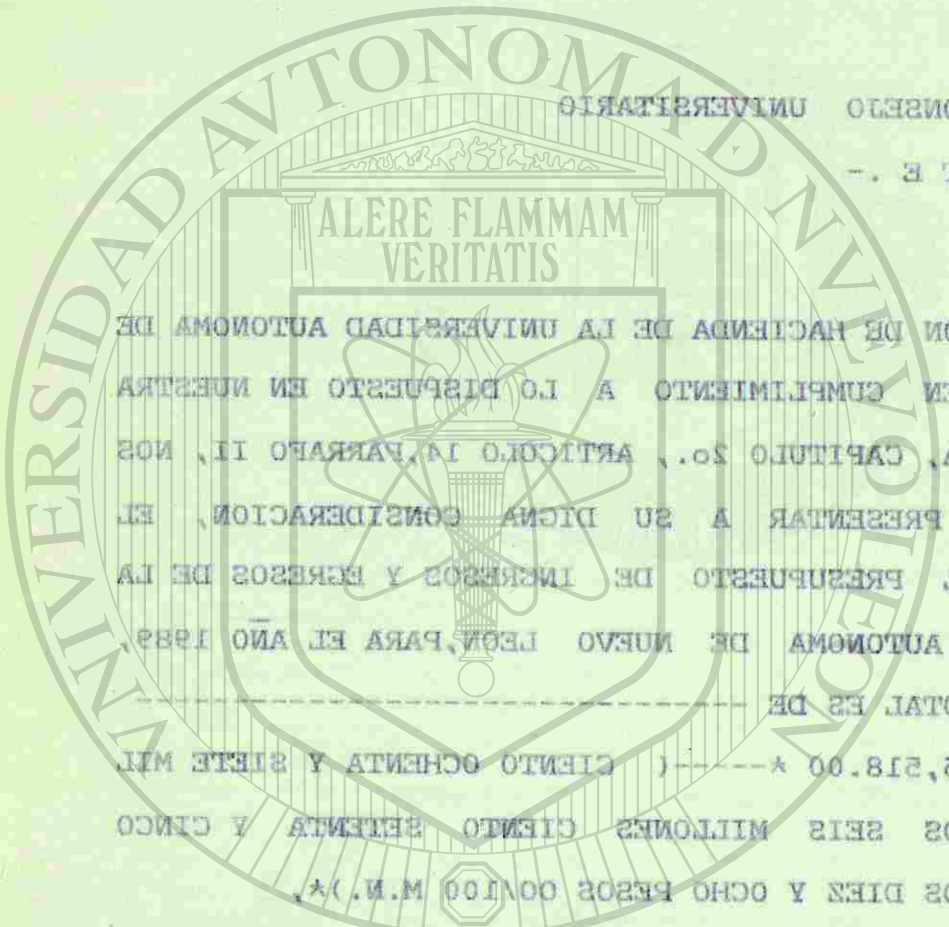 UNIVERSIDAD AVTONOMA D NVEVO LEON
ALERE FLAMMAM
VERITATIS
ONSEJO UNIVERSITARIO
E .-
ON DE HACIENDA DE LA UNIVERSIDAD AUTONOMA DE
EN CUMPLIMIENTO A LO DISPUESTO EN NUESTRA
A, CAPITULO 2o., ARTICOLO 14,PARRAFO II, NOS
PRESENTAR A SU DIGNA CONSIDERACION, EL
PRESUPUESTO DE INGRESOS Y EGRESOS DE LA
AUTONOMA DE NUEVO LEON,PARA EL AÑO 1989,
OTAL ES DE -----------------------------------
5,518.00 *-----( CIENTO OCHENTA Y SIETE MIL
OS SEIS MILLONES CIENTO SETENTA Y CINCO
OS DIEZ Y OCHO PESOS 00/100 M.N.)*,